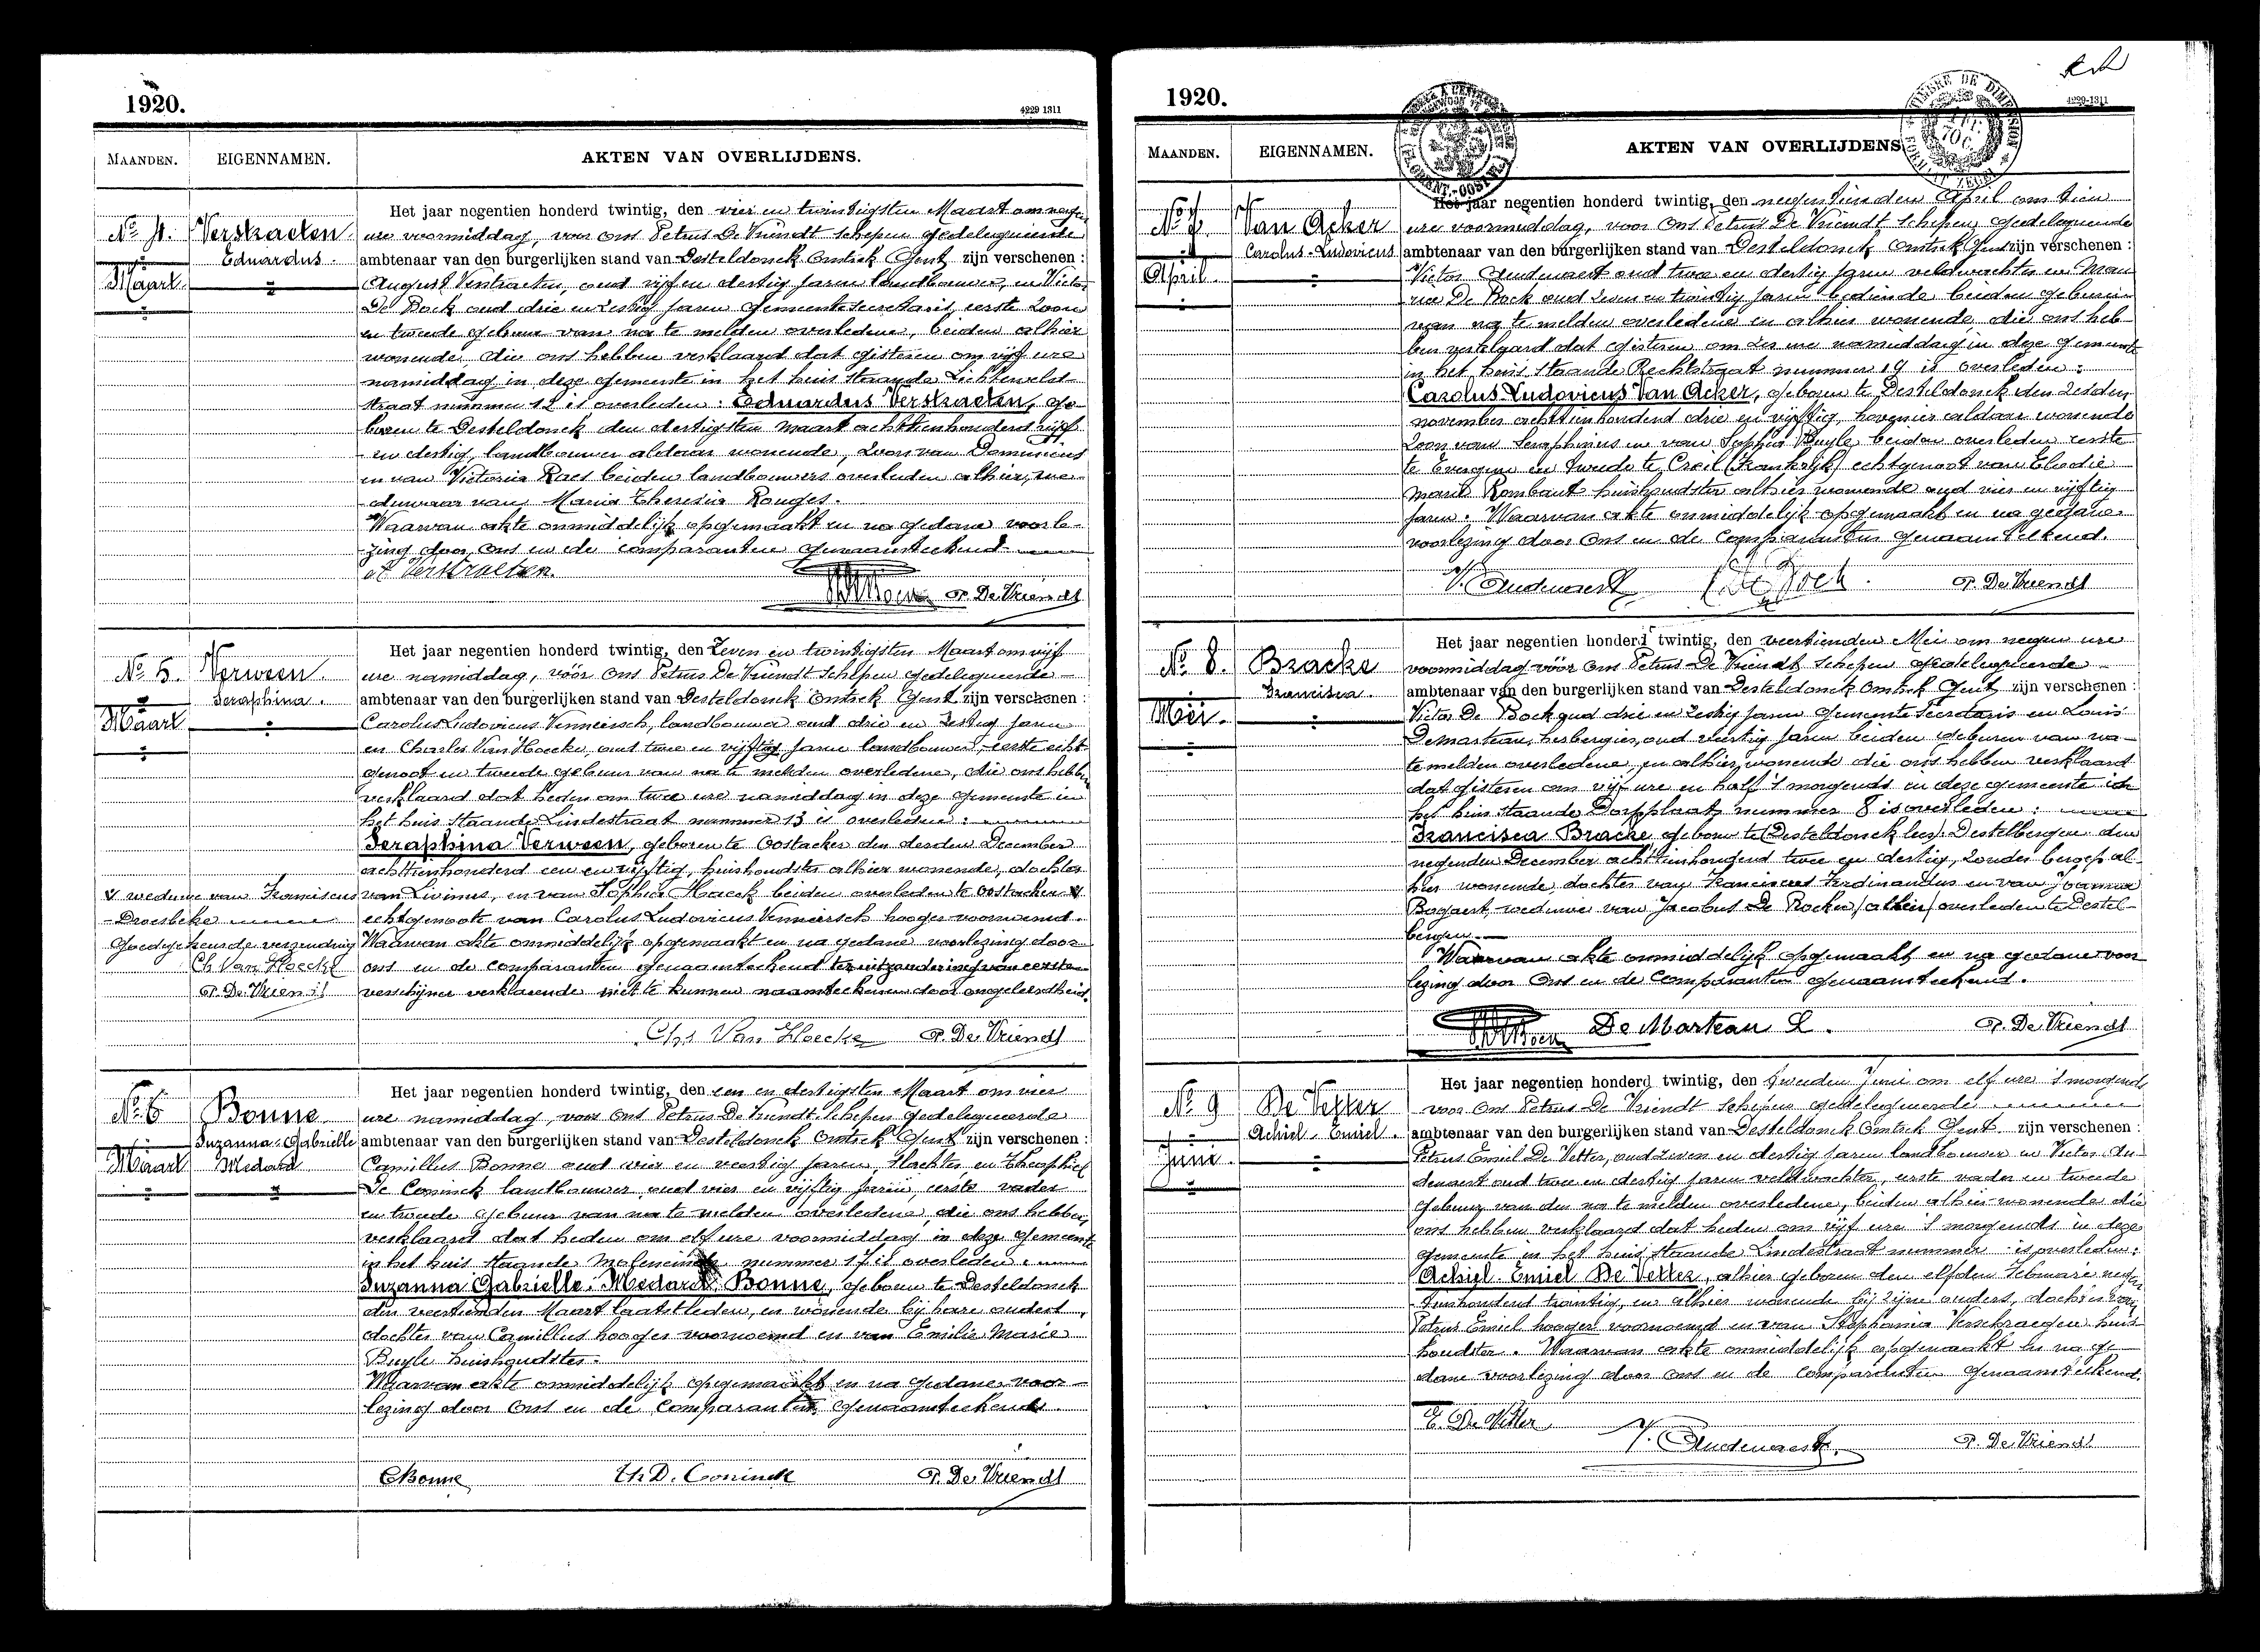 1920.
4229 1311
MAANDEN. EIGENNAMEN. AKTEN VAN OVERLIJDENS.
No 4. Verstraeten Eduardus.
Maart
Het jaar negentien honderd twintig, den vier en twintigsten Maart om negen
ure voormiddag, voor ons Petrus De Vriendt schepen gedelegueerde
ambtenaar van den burgerlijken stand van Desteldonck Omtrek Gent zijn verschenen :
August Verstraeten, oud vijf en dertig jaren landbouwer, en Victor
De Bock oud drie en zestig jaren gemeentesecretaris, eerste zoon
en tweede gebuur van na te melden overledene, beiden alhier
wonende die ons hebben verklaard dat gisteren om vijf ure
namiddag in deze gemeente in het huis staande Lichtervelde-
straat nummer 12 is overleden : Eduardus Verstraeten, ge-
boren te Desteldonck den dertigsten Maart achttienhonderd vijf
en dertig, landbouwer aldaar wonende, zoon van Dominicus
en van Victoria Raes beiden landbouwers overleden alhier, we-
duwnaar van Maria Theresia Rouges.
Waarvan akte onmiddelijk opgemaakt en na gedane voorle-
zing door ons en de comparanten genaamteekend
A Verstraeten. P. De Vriendt
No 5. Verween Seraphina.
Maart
Het jaar negentien honderd twintig, den zeven en twintigsten Maart om vijf
ure namiddag, vóór ons Petrus De Vriendt schepen gedelegueerde
ambtenaar van den burgerlijken stand van Desteldonck Omtrek Gent zijn verschenen :
Carolus Ludovicus Vermeirsch, landbouwer oud drie en zestig jaren
en Charles Van Hoecke, oud twee en vijftig jaren landbouwer, eerste echt-
genoot en tweede gebuur van na te melden overledene, die ons hebben
verklaard dat heden om twee ure namiddag in deze gemeente in
het huis staande Lindestraat nummer 13 is overleden :
Seraphina Verween, geboren te Oostacker den derden December
achttienhonderd een en vijftig, huishoudster alhier wonende, dochter
van Livinus, en van Sophia Haeck beiden overleden te Oostacker
echtgenoote van Carolus Ludovicus Vermeirsch hooger voornoemd.
Waarvan akte onmiddelijk opgemaakt en na gedane voorlezing door
ons en de comparanten genaamteekend ter uitzondering van eersten
verschijner verklarende niet te kunnen naamteekenen door ongeleerdheid.
weduwe van Franciscus
Droesbeke
Goedgekeurde verzending
Ch Van Hoecke
P. De Vriendt
Chs Van Hoecke P. De Vriendt
No 6 Bonne Suzanna-Gabrielle Medard
Maart
Het jaar negentien honderd twintig, den een en dertigsten Maart om vier
ure namiddag, voor ons Petrus De Vriendt schepen gedelegueerde
ambtenaar van den burgerlijken stand van Desteldonck Omtrek Gent zijn verschenen :
Camillus Bonne oud vier en veertig jaren, slachter, en Theophiel
De Coninck landbouwer, oud vier en vijftig jaren, eerste vader
en tweede gebuur van na te melden overledene, die ons hebben
verklaard dat heden om elf ure voormiddag in deze gemeente
in het huis staande nummer 17 is overleden :
Suzanna Gabrielle Medard Bonne, geboren te Desteldonck
den veertienden Maart laatstleden, en wonende bij hare ouders,
dochter van Camillus hooger voornoemd en van Emilie Marie
Buyle huishoudster.
Waarvan akte onmiddelijk opgemaakt en na gedane voor-
lezing door ons en de comparanten genaamteekend.
CBonne Th D. Coninck P. De Vriendt
1920.
4229-1311
MAANDEN. EIGENNAMEN. AKTEN VAN OVERLIJDENS
No 7 Van Acker Carolus-Ludovicus
April
Het jaar negentien honderd twintig, den negentienden April om tien
ure voormiddag, voor Ons Petrus De Vriendt Schepen gedelegueerde
ambtenaar van den burgerlijken stand van Desteldonck Omtrek Gent zijn verschenen :
Victor Oudenaert oud twee en dertig jaren veldwachter en Mau-
rice De Bock oud zeven en twintig jaren bediende, beiden geburen
van na te melden overledene en alhier wonende die ons heb-
ben verklaard dat gisteren om zes ure namiddag in deze gemeente
in het huis staande Rechtstraat nummer 19 is overleden :
Carolus-Ludovicus Van Acker, geboren te Desteldonck den zesden
november achttienhonderd drie en vijftig, hovenier aldaar wonende
zoon van Seraphinus en van Sophia Buyle, beiden overleden eerste
te Evergem en tweede te Creil (Frankrijk) echtgenoot van Elodie
Marie Rombaut huishoudster alhier wonende oud vier en vijftig
jaren. Waarvan akte onmiddelijk opgemaakt en na gedane
voorlezing door Ons en de Comparanten genaamteekend.
V. Oudenaert De Bock. P. De Vriendt
No 8. Bracke Francisca.
Mei.
Het jaar negentien honderd twintig, den veertienden Mei om negen ure
voormiddag vóór ons Petrus De Vriendt schepen gedelegueerde
ambtenaar van den burgerlijken stand van Desteldonck Omtrek Gent zijn verschenen :
Victor De Bock oud drie en zestig jaren gemeente secretaris en Louis
De Marteau, herbergier, oud veertig jaren beiden geburen van na-
te melden overledene, en alhier wonende die ons hebben verklaard
dat gisteren om vijf ure en half 's morgends in deze gemeente in
het huis staande Dorpplaats nummer 8 is overleden :
Francisca Bracke geboren te (Desteldonck lees) Destelbergen den
negenden December achttienhonderd twee en dertig, zonder beroep al-
hier wonende, dochter van Franciscus Ferdinandus en van Joanna
Bogaert, weduwe van Jacobus De Rocker (alhier) overleden te Destel-
bergen.
Waarvan akte onmiddelijk opgemaakt en na gedane voor-
lezing door Ons en de Comparanten genaamteekend.
De Marteau L. P. De Vriendt
No 9 De Vetter Achiel-Emiel.
Juni.
Het jaar negentien honderd twintig, den tweeden Juni om elf ure 's morgends
voor Ons Petrus De Vriendt Schepen gedelegueerde
ambtenaar van den burgerlijken stand van Desteldonck Omtrek Gent zijn verschenen :
Petrus Emiel De Vetter, oud zeven en dertig jaren landbouwer en Victor Au-
denaert oud twee en dertig jaren veldwachter, eerste vader en tweede
gebuur van den na te melden overledene, beiden alhier wonende die
ons hebben verklaard dat heden om vijf ure 's morgends in deze
gemeente in het huis staande Lindestraat nummer is overleden :
Achiel-Emiel De Vetter, alhier geboren den elfden Februari negen-
tienhonderd twintig, en alhier wonende bij zijne ouders, dochter van
Petrus Emiel hooger voornoemd en van Stephania Verschraegen huis-
houdster. Waarvan akte onmiddelijk opgemaakt en na ge-
dane voorlezing door ons en de comparanten genaamteekend.
E. De Vetter
V. Oudenaert. P. De Vriendt